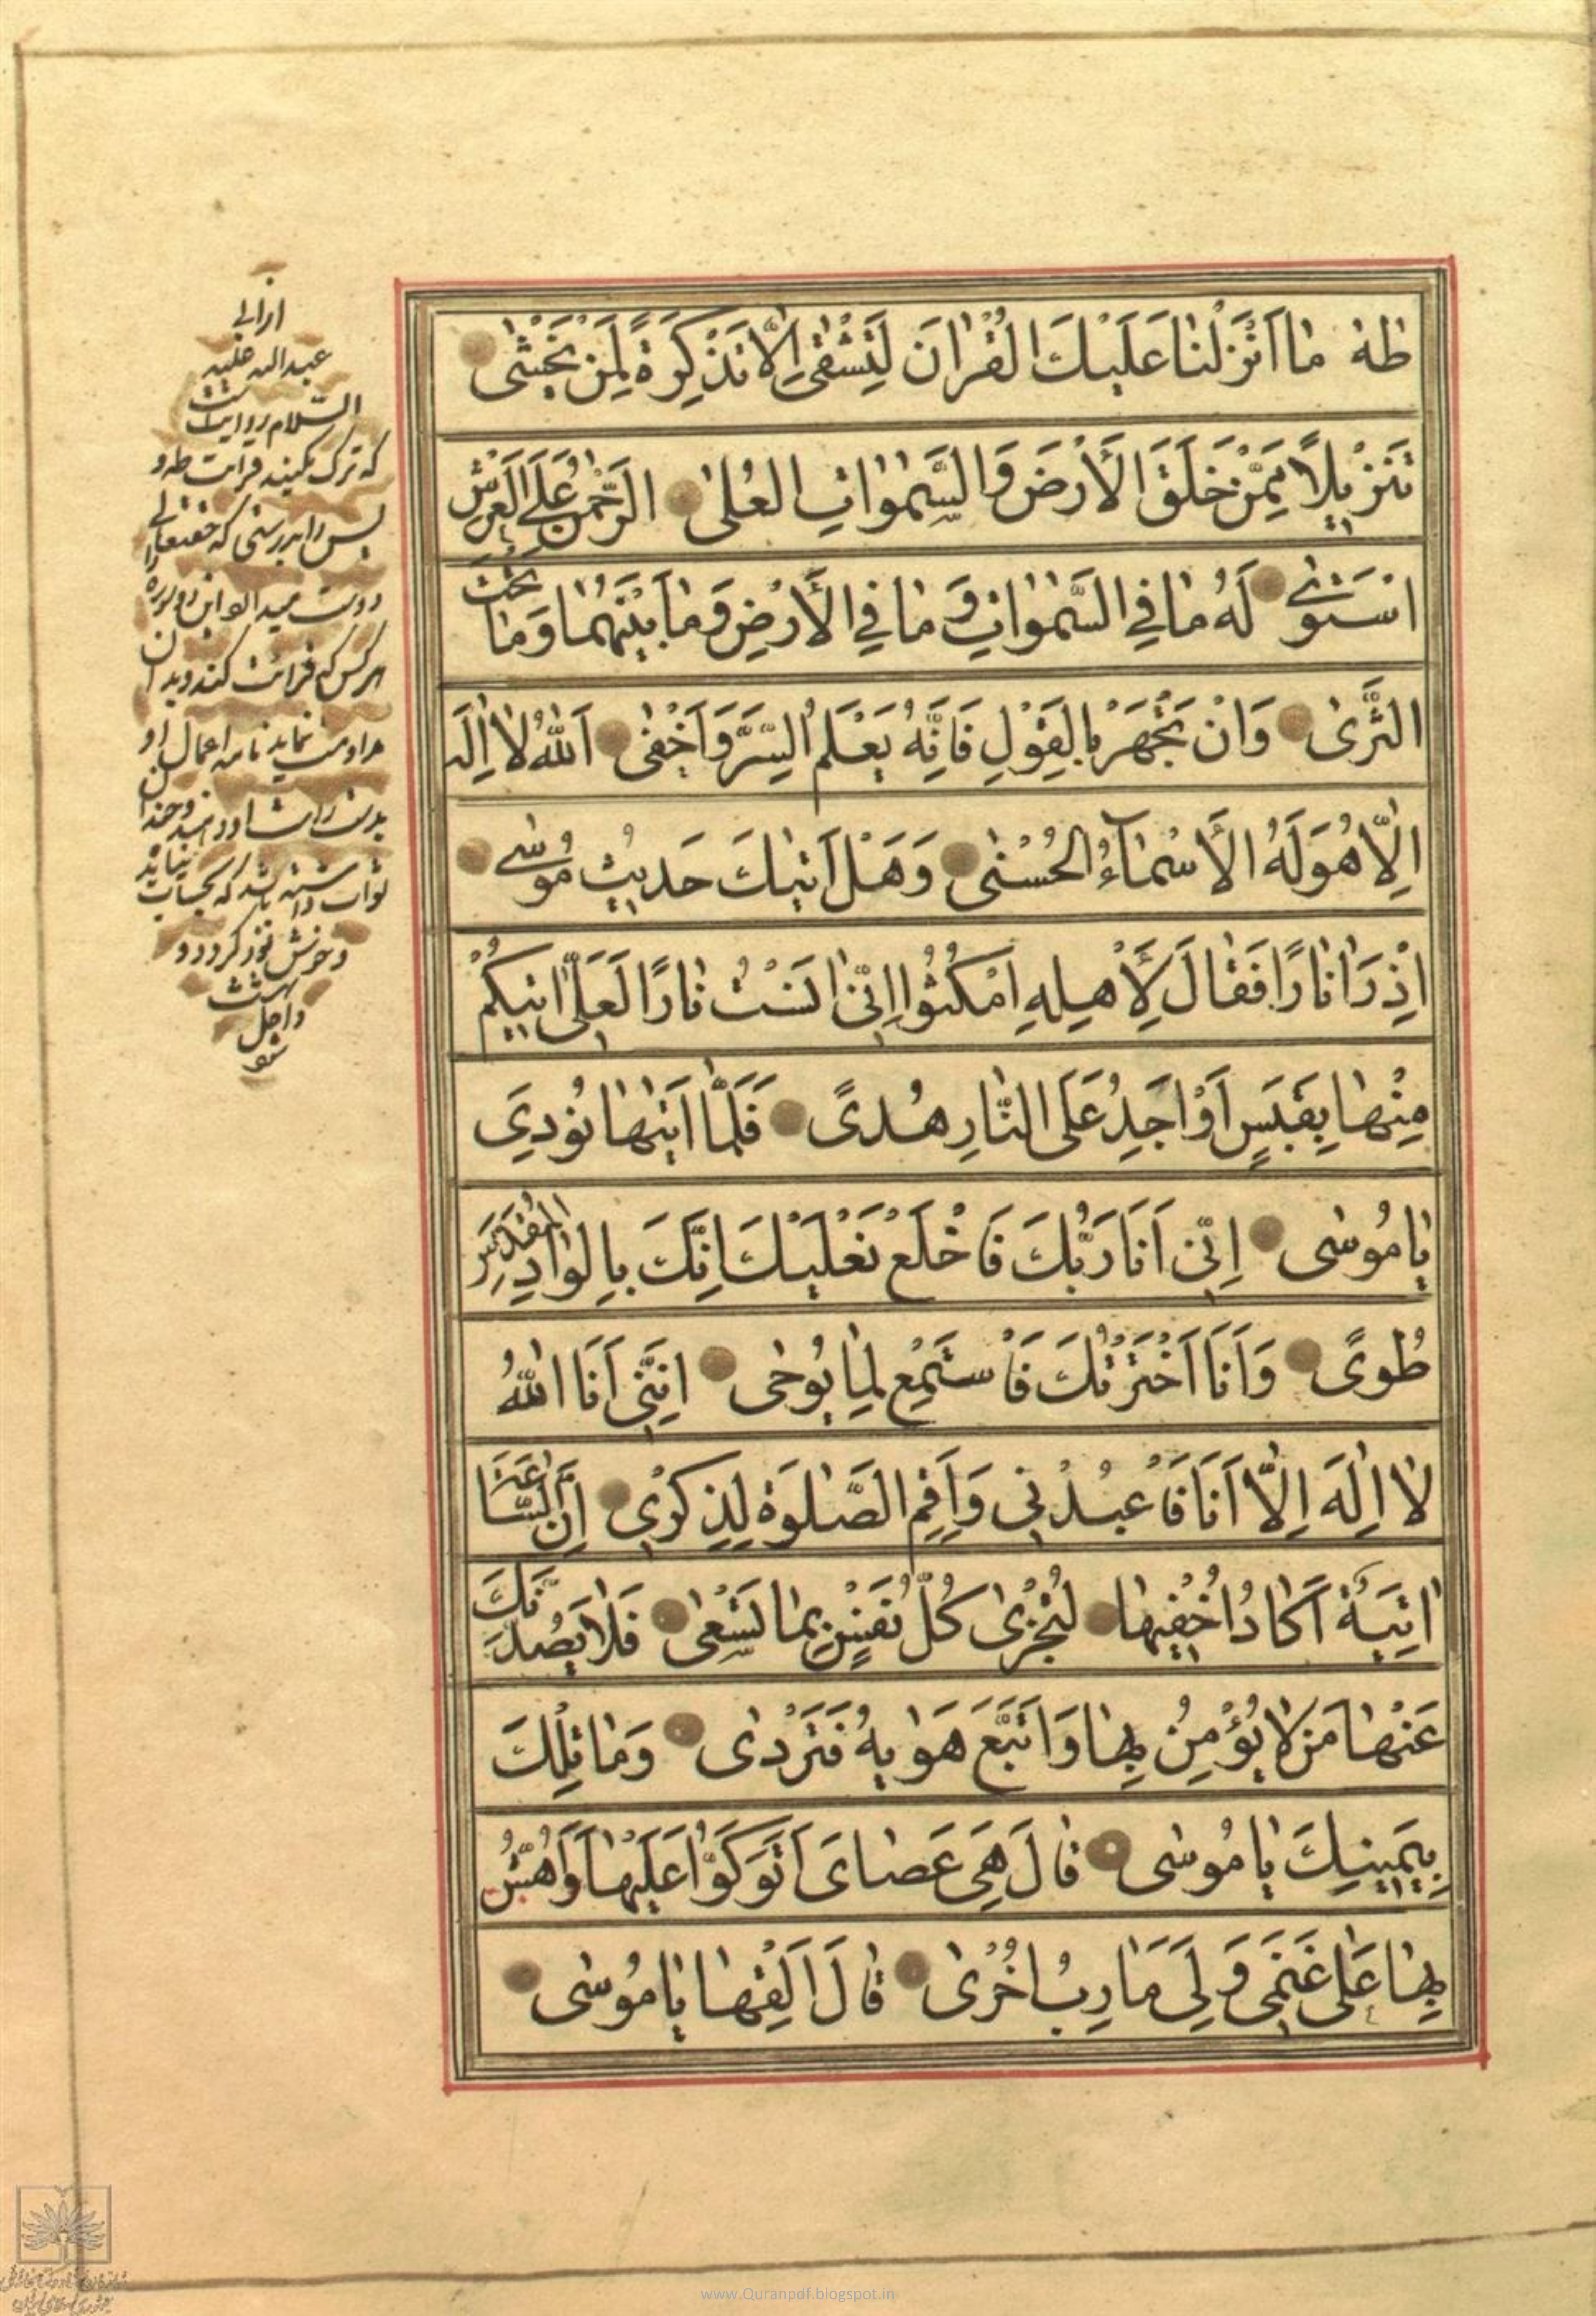 طٰهٰ مٰا اَنْزَلْنٰا عَلَيْكَ الْقُرْاٰنَ لِتَشْقىٰ اِلّٰا تَذْكِرَةً لِمَنْ يَخْشٰى
تَنْزيلاً مِمَّنْ خَلَقَ الْأَرْضَ وَالسَّمٰوٰاتِ الْعُلىٰ الرَّحْمٰنُ عَلَى الْعَرْشِ
اسْتَوٰى لَهُ مٰا فِي السَّمٰوٰاتِ وَ مٰا فِي الْأَرْضِ وَ مٰا بَيْنَهُمٰا وَمٰا تَحْتَ
الثَّرىٰ وَاِنْ تَجْهَرْ بِالْقَوْلِ فَاِنَّهُ يَعْلَمُ السِّرَّ وَاَخْفٰى اَللّٰهُ لٰا اِلٰهَ
اِلّٰا هُوَ لَهُ الْأَسْمٰاۤءُ الْحُسْنٰى وَهَلْ اَتٰيكَ حَديثُ مُوسٰى
اِذْ رَاٰ نٰارًا فَقٰالَ لِأَهْلِهِ امْكُثُوا اِنّى اٰنَسْتُ نٰارًا لَعَلّى اٰتيكُمْ
مِنْهٰا بِقَبَسٍ اَوْ اَجِدُ عَلَى النّٰارِ هُدىً فَلَمّٰا اَتٰيهٰا نُودِيَ
يٰا مُوسٰى اِنّى اَنَا رَبُّكَ فَاخْلَعْ نَعْلَيْكَ اِنَّكَ بِالْوٰادِ الْمُقَدَّسِ
طُوىً وَاَنَا اخْتَرْتُكَ فَاسْتَمِعْ لِمٰا يُوحٰى اِنَّنى اَنَا اللّٰهُ
لٰا اِلٰهَ اِلّٰا اَنَا فَاعْبُدْنى وَاَقِمِ الصَّلٰوةَ لِذِكْرى اِنَّ السّٰاعَةَ
اٰتِيَةٌ اَكٰادُ اُخْفيهٰا لِتُجْزٰى كُلُّ نَفْسٍ بِمٰا تَسْعٰى فَلٰا يَصُدَّنَّكَ
عَنْهٰا مَنْ لٰا يُؤْمِنُ بِهٰا وَاتَّبَعَ هَوٰيهُ فَتَرْدٰى وَمٰا تِلْكَ
بِيَمينِكَ يٰا مُوسٰى قٰالَ هِىَ عَصٰاىَ اَتَوَكَّؤُا عَلَيْهٰا وَاَهُشُّ
بِهٰا عَلٰى غَنَمى وَلِىَ فيهٰا مَاٰرِبُ اُخْرٰى قٰالَ اَلْقِهٰا يٰا مُوسٰى
از ابى
عبدالله عليه
السّلام روايتست
كه ترك مكنيد قرائت طه و
دوست ميدارد
هر كس كه قرائت كند
مداومت نمايد نامه اعمال او
بدست راست او دهند و چندان
ثواب داشته باشد كه بحساب نيايد
بهشت
داخل
شود
www.Quranpdf.blogspot.in